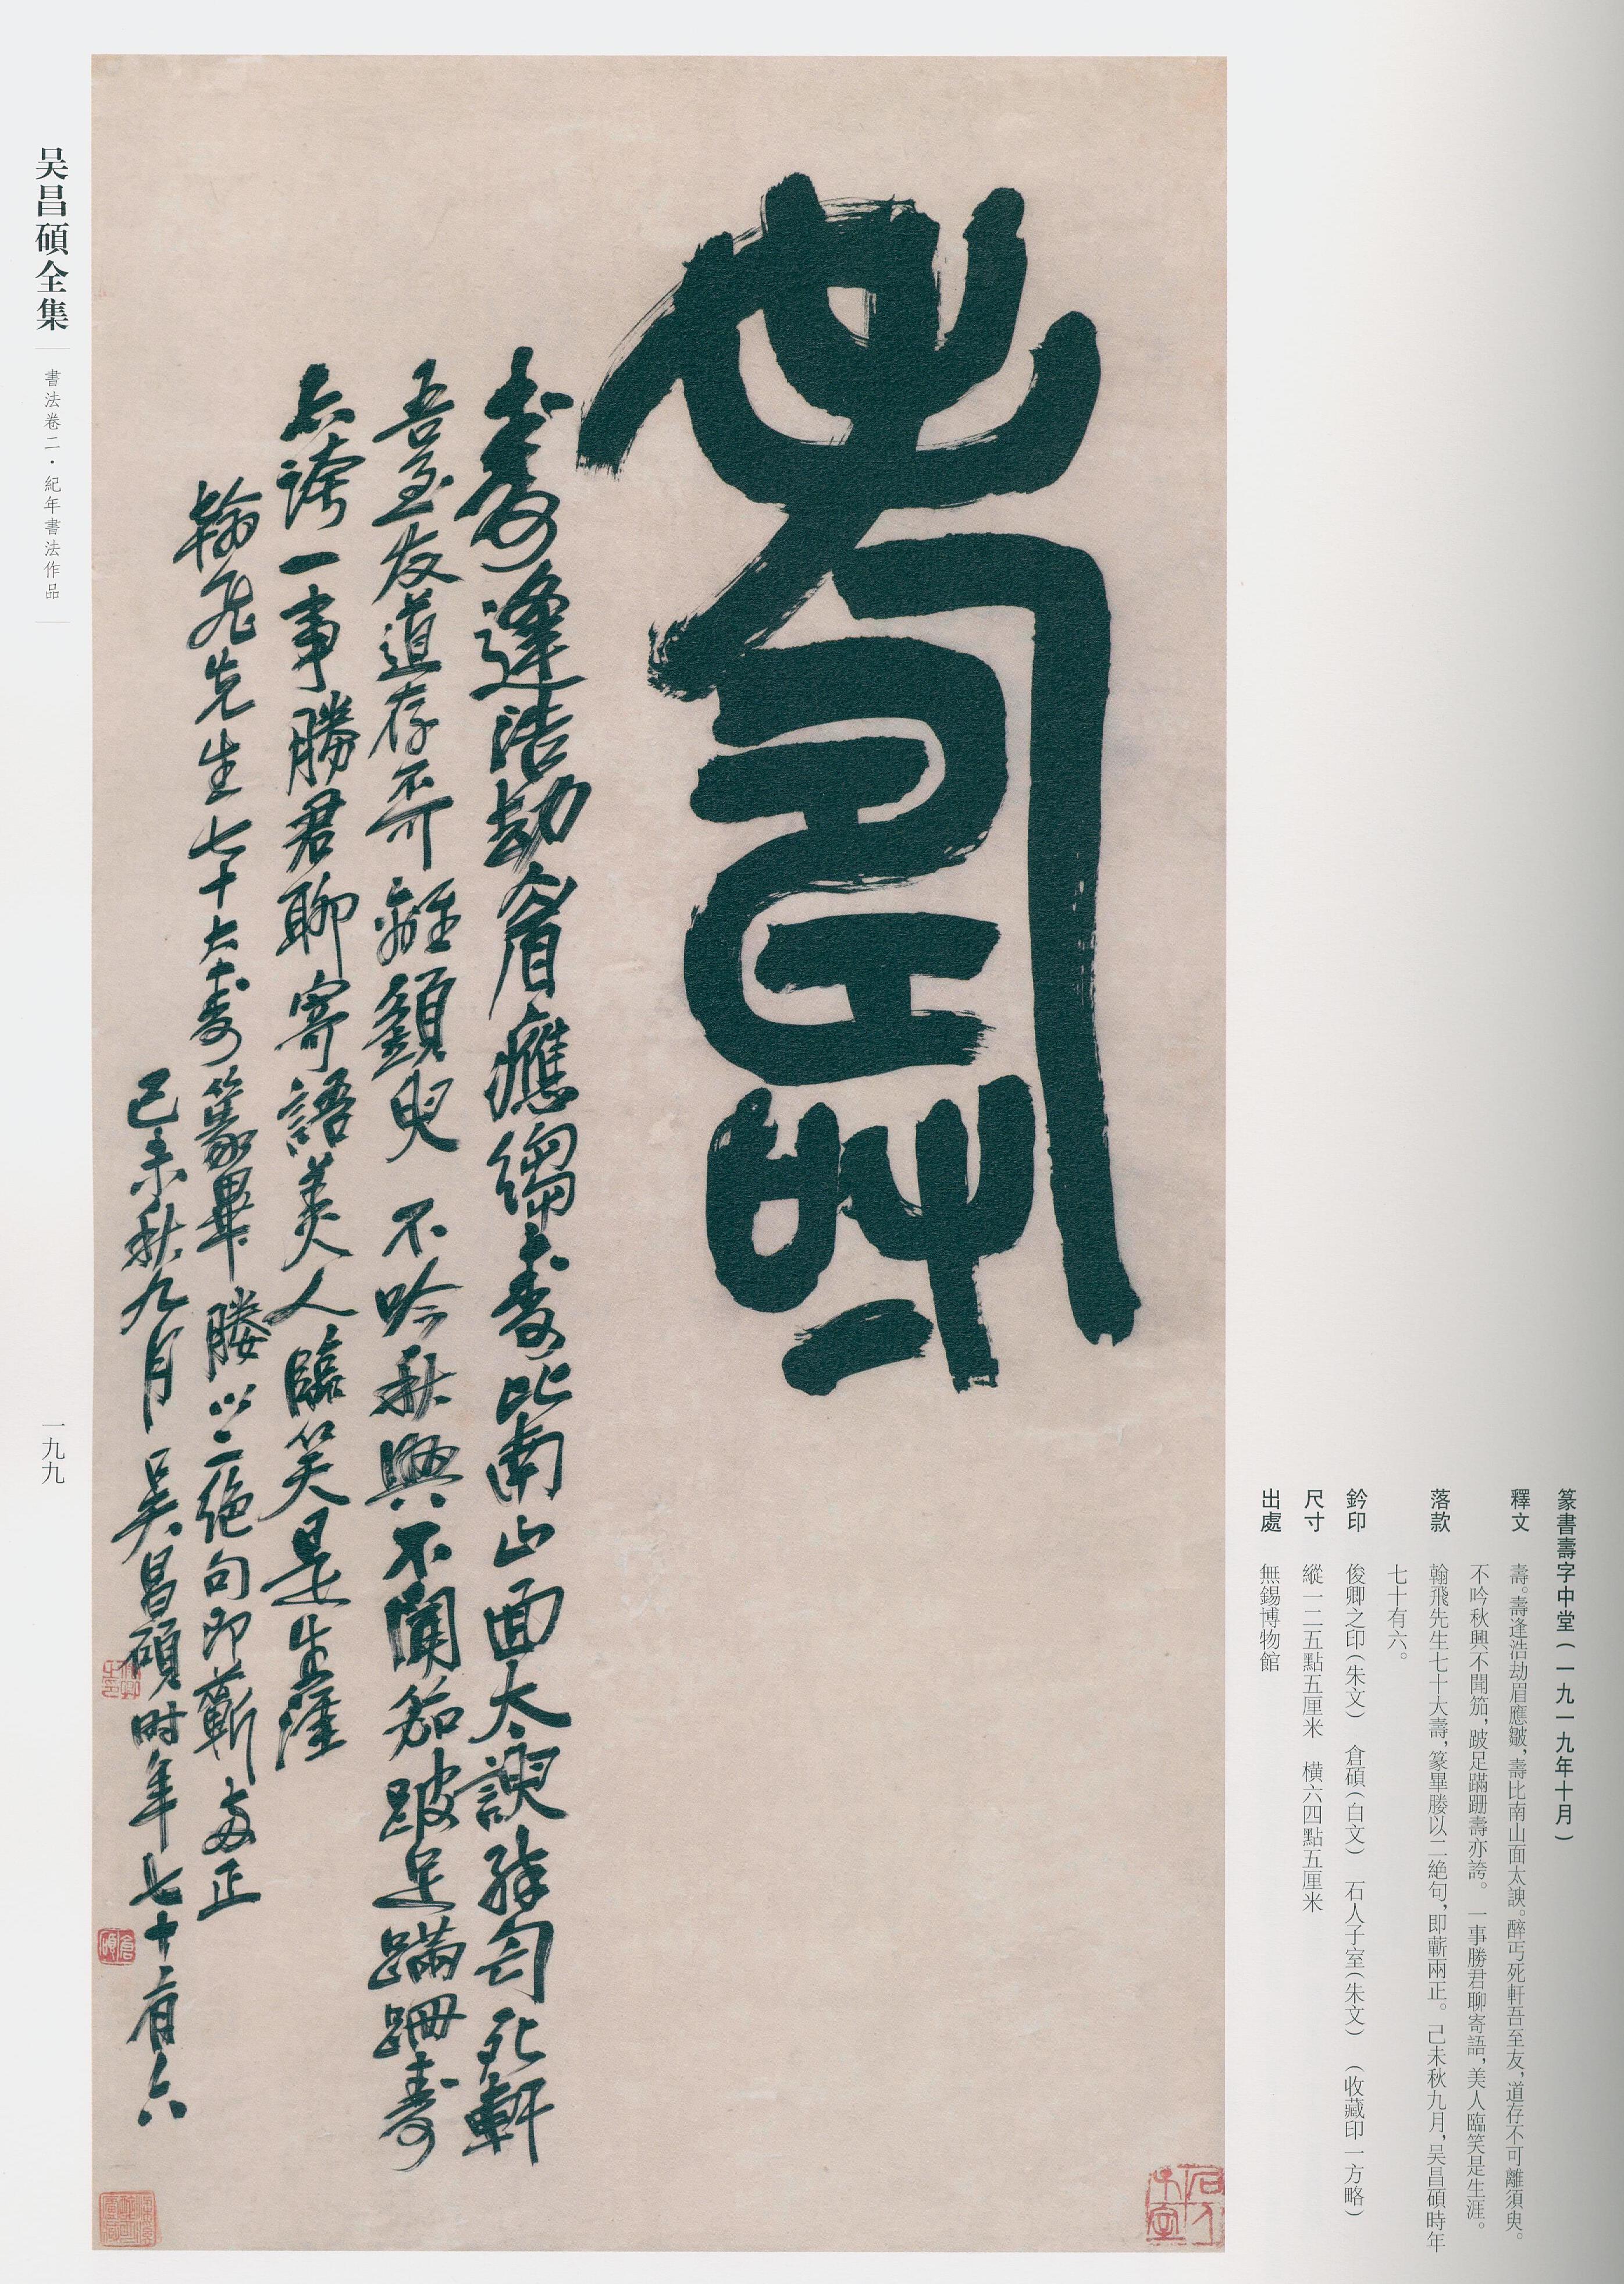 篆書壽字中堂(一九一九年十月)
釋文 壽。壽逢浩劫眉應皺,壽比南山面太諛。醉丐死軒吾至友,道存不可離須臾。
不吟秋興不聞笳,跛足蹣跚壽亦誇。一事勝君聊寄語,美人臨笑是生涯。
落款 翰飛先生七十大壽,篆畢媵以二絕句,即蘄兩正。己未秋九月,吴昌碩時年
七十有六。
鈐印 俊卿之印(朱文) 倉碩(白文) 石人子室(朱文) (收藏印一方略)
尺寸 縱一二五點五厘米 横六四點五厘米
出處 無錫博物館
壽
壽逢浩劫眉應縐壽比南山面太諛醉丐死軒
吾至友道存不可離須臾 不吟秋興不聞笳跛足蹣跚壽
亦誇一事勝君聊寄語美人臨笑是生涯
翰飛先生七十大壽篆畢媵以二絕句即蘄兩正
己未秋九月吴昌碩時年七十有六
俊卿之印
倉碩
石人子室
吴昌碩全集
書法卷二·紀年書法作品
一九九